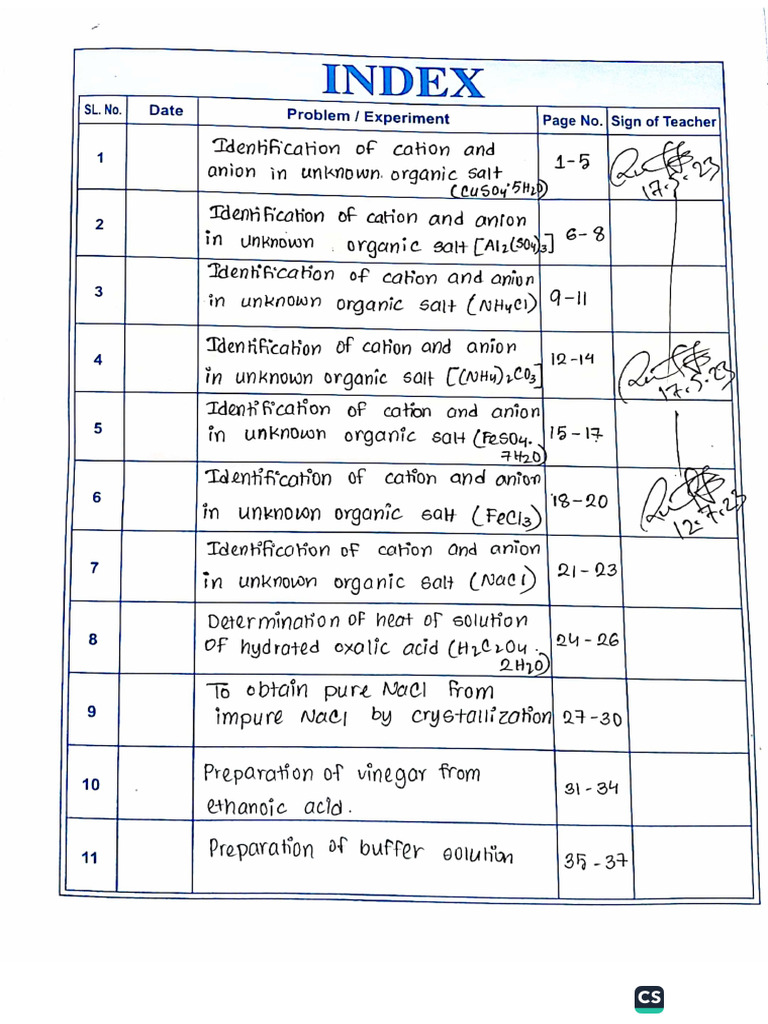 INDEX
SL. No. Date Problem / Experiment Page No. Sign of Teacher
1 Identification of cation and anion in unknown organic salt (CuSO4·5H2O) 1-5
17.5.23
2 Identification of cation and anion in unknown organic salt [Al2(SO4)3] 6-8
3 Identification of cation and anion in unknown organic salt (NH4Cl) 9-11
4 Identification of cation and anion in unknown organic salt [(NH4)2CO3] 12-14
17.5.23
5 Identification of cation and anion in unknown organic salt (FeSO4.7H2O) 15-17
6 Identification of cation and anion in unknown organic salt (FeCl3) 18-20
12.7.23
7 Identification of cation and anion in unknown organic salt (NaCl) 21-23
8 Determination of heat of solution of hydrated oxalic acid (H2C2O4.2H2O) 24-26
9 To obtain pure NaCl from impure NaCl by crystallization 27-30
10 Preparation of vinegar from ethanoic acid. 31-34
11 Preparation of buffer solution 35-37
CS